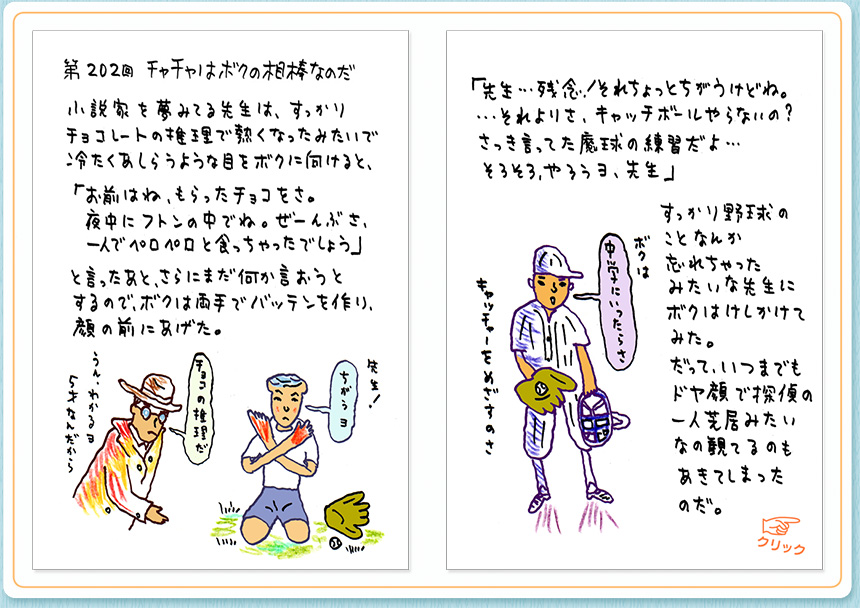 第202回 チャチャはボクの相棒なのだ
小説家を夢みてる先生は、すっかり
チョコレートの推理で熱くなったみたいで
冷たくあしらうような目をボクに向けると、
「お前はね、もらったチョコをさ。
夜中にフトンの中でね。ぜーんぶさ、
一人でペロペロと食っちゃったでしょう」
と言ったあと、さらにまだ何か言おうと
するので、ボクは両手でバッテンを作り、
顔の前にあげた。
うん、わかるヨ
5才なんだから
チョコの推理だ
ちがうヨ
先生!
「先生…残念!それちょっとちがうけどね。
…それよりさ、キャッチボールやらないの?
さっき言ってた魔球の練習だよ…
そろそろ,やろうヨ、先生」
ボクは
中学にいったらさ
キャッチャーをめざすのさ
すっかり野球の
ことなんか
忘れちゃった
みたいな先生に
ボクはけしかけて
みた。
だって、いつまでも
ドヤ顔で探偵の
一人芝居みたい
なの観てるのも
あきてしまった
のだ。
クリック